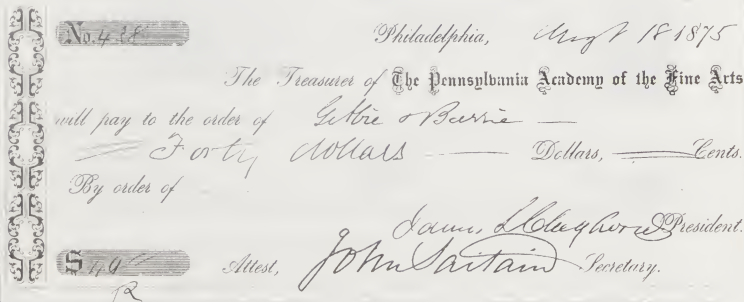 No. 438
Philadelphia, Augt 18 1875
The Treasurer of The Pennsylvania Academy of the Fine Arts
will pay to the order of Gebbie & Barrie —
— Forty dollars — Dollars, — Cents.
By order of
James L Claghorn President.
$ 40
Attest, John Sartain Secretary.